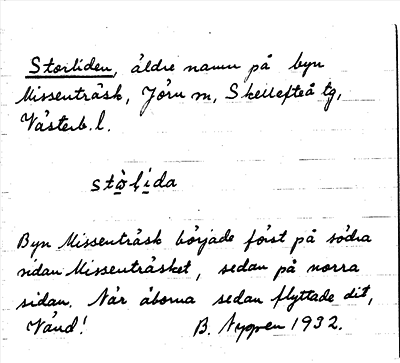 Storliden, äldre namn på byn
Missenträsk, Jörn sn, Skellefteå tg,
Västerb. l.
stò̱lí̱da
Byn Missenträsk började först på södra
sidan Missenträsket, sedan på norra
sidan. När åborna sedan flyttade dit,
Vänd! B. Nygren 1932.